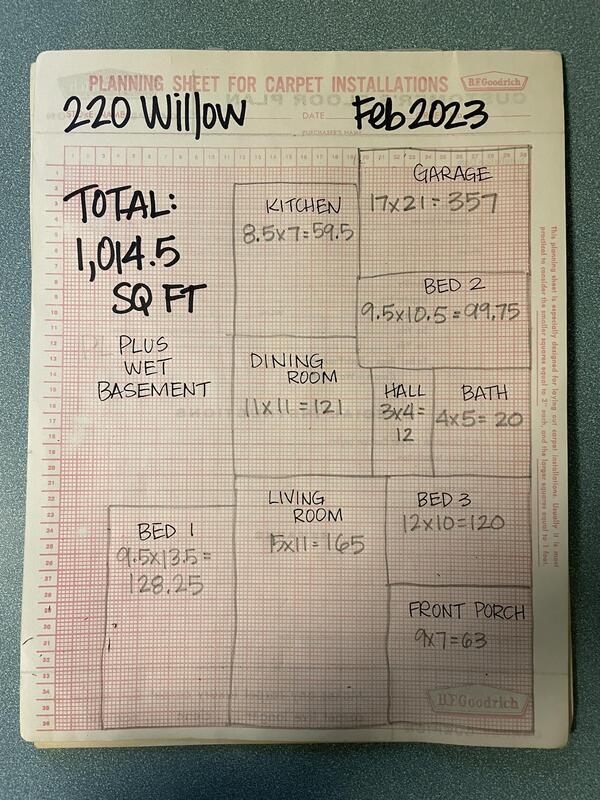 PLANNING SHEET FOR CARPET INSTALLATIONS
B.F.Goodrich
220 Willow
DATE
Feb 2023
PURCHASER'S NAME
TOTAL:
1,014.5
SQ FT
PLUS
WET
BASEMENT
KITCHEN
8.5x7=59.5
GARAGE
17x21=357
BED 2
9.5x10.5=99.75
DINING
ROOM
11x11=121
HALL
3x4=
12
BATH
4x5=20
LIVING
ROOM
15x11=165
BED 3
12x10=120
BED 1
9.5x13.5=
128.25
FRONT PORCH
9x7=63
B.F.Goodrich
This planning sheet is especially designed for laying out carpet installations. Usually it is most
practical to consider the smaller squares equal to 3" each, and the larger squares equal to 1 foot.